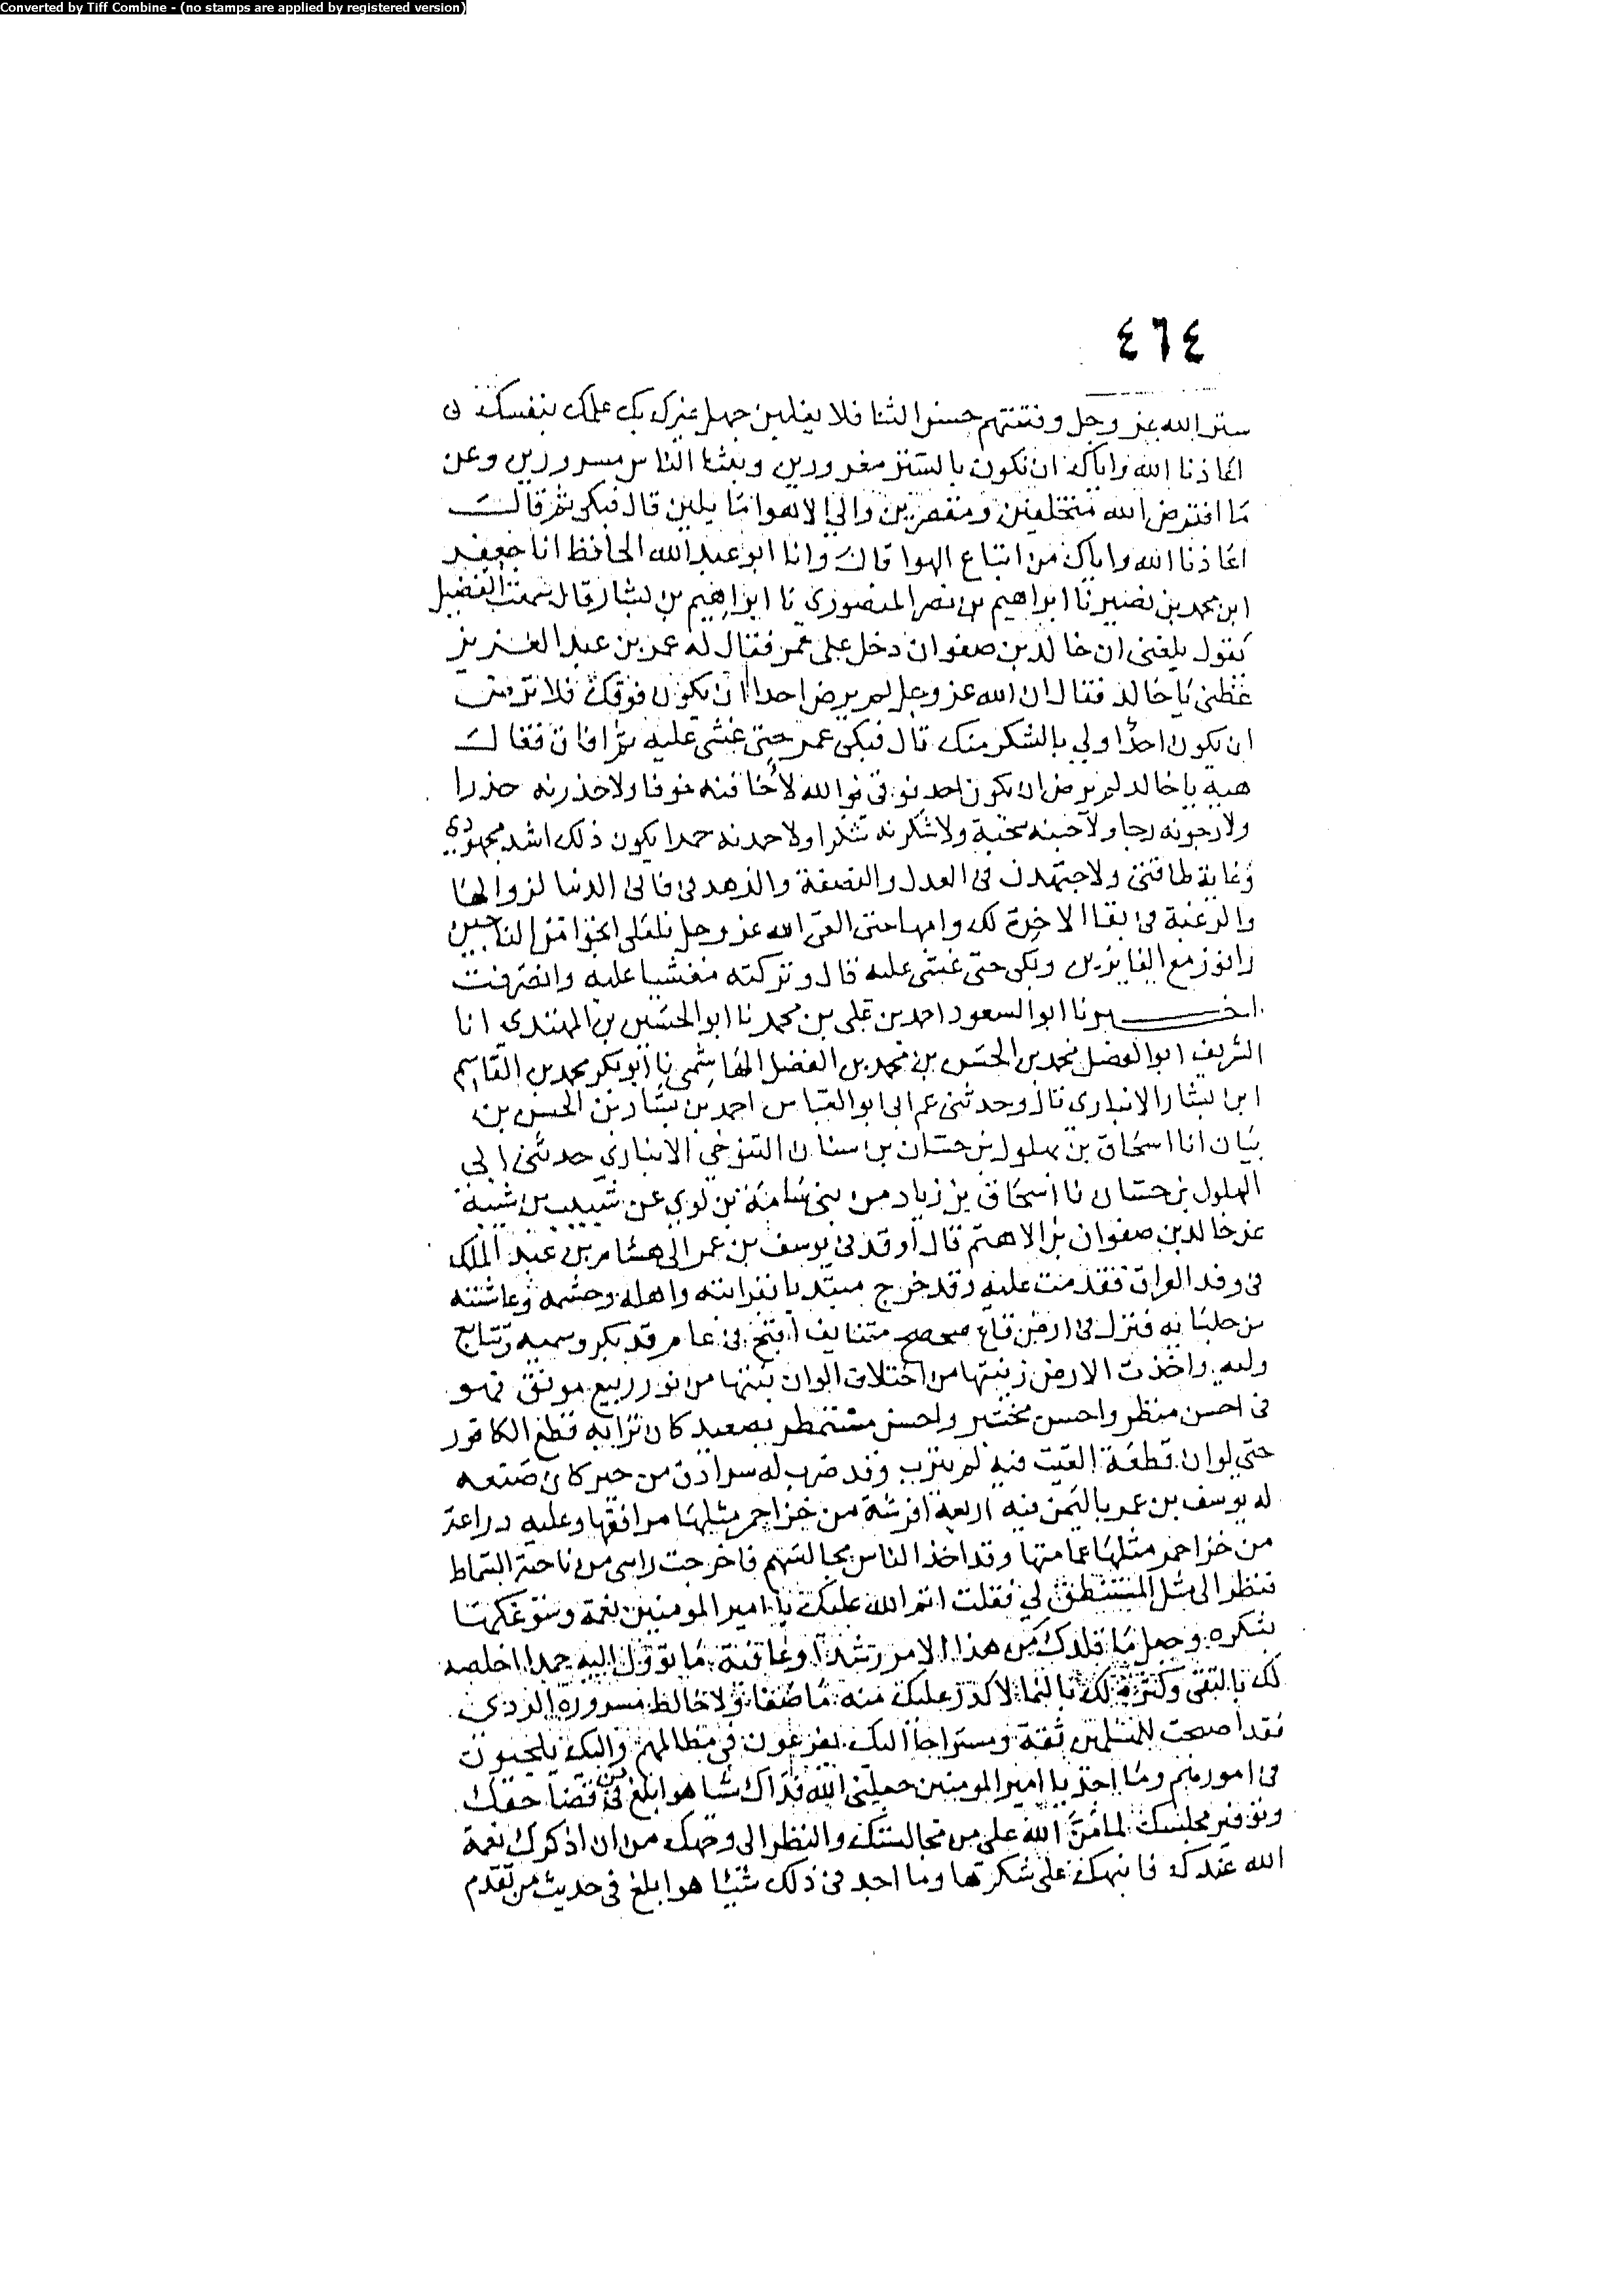 Converted by Tiff Combine - (no stamps are applied by registered version)
٤٦٤
ستر الله عز وجل وفتنتهم حسن الثنا فلا يغلبن جهل غيرك بك علمك بنفسك
اعاذنا الله واياك ان نكون بالستر مغرورين وبثنا الناس مسرورين وعن
ما افترض الله متخلفين ومقصرين والى الاهوا مايلين قال فبكى ثم قال
اعاذنا الله واياك من اتباع الهوا قال وانا ابو عبد الله الحافظ انا جعفر
ابن محمد بن نصير نا ابراهيم بن نصر المنصوري نا ابراهيم بن بشار قال سمعت الفضيل
يقول بلغني ان خالد بن صفوان دخل على عمر فقال له عمر بن عبد العزيز
عظني يا خالد فقال ان الله عز وجل لم يرض احدا ان يكون فوقك فلا ترض
ان يكون احدا اولى بالشكر منك قال فبكى عمر حتى غشي عليه ثم افاق فقال
هيه يا خالد لم يرض ان يكون احد فوقي فوالله لاخافنه خوفا ولاحذرنه حذرا
ولارجونه رجا ولاحبنه محبة ولاشكرنه شكرا ولاحمدنه حمدا يكون ذلك اشد مجهودي
وغاية طاقتي ولاجتهدن في العدل والنصفة والزهد في فاني الدنيا لزوالها
والرغبة في بقا الاخرة لدوامها حتى القى الله عز وجل فلعلي انجوا مع الناجين
وافوز مع الفايزين وبكى حتى غشي عليه قال وتركته مغشيا عليه وانصرفت
اخبرنا ابو السعود احمد بن علي بن محمد نا ابو الحسين بن المهتدي انا
الشريف ابو الفضل محمد بن الحسن بن محمد بن الفضل الهاشمي نا ابو بكر محمد بن القاسم
ابن بشار الانباري قال وحدثني عم ابي ابو العباس احمد بن بشار بن الحسن بن
بيان انا اسحاق بن بهلول بن حسان بن سنان التنوخي الانباري حدثني ابي
البهلول بن حسان نا اسحاق بن زياد من بني سامة بن لوي عن شبيب بن شيبة
عن خالد بن صفوان بن الاهتم قال اوفدني يوسف بن عمر الى هشام بن عبد الملك
في وفد العراق فقدمت عليه وقد خرج مبتديا بقرابته واهله وحشمه وغاشيته
من جلسايه فنزل في ارض قاع صحصح متنايف افيح في عام قد بكر وسميه وتتابع
وليه واخذت الارض زينتها من اختلاف الوان نبتها من نور ربيع مونق فهو
في احسن منظر واحسن مختبر واحسن مستمطر بصعيد كان ترابه قطع الكافور
حتى لو ان قطعة القيت فيه لم تترب وقد ضرب له سرادق من حبر كان صنعه
له يوسف بن عمر باليمن فيه اربعة افرشة من خز احمر مثلها مرافقها وعليه دراعة
من خز احمر مثلها عمامتها وقد اخذ الناس مجالسهم فاخرجت راسي من ناحية السماط
فنظر الى مثل المستنطق لي فقلت اتم الله عليك يا امير المومنين نعمة وسوغكها
بشكره وجعل ما قلدك من هذا الامر رشدا وعاقبة ما توول اليه حمدا اخلصه
لك بالتقى وكثره لك بالنما لا كدر عليك منه ما صفا ولا خالط مسروره الردى
فقد اصبحت للمسلمين ثقة ومستراحا اليك يفزعون في مظالمهم واليك يلجيون
في امورهم وما اجد يا امير المومنين جعلني الله فداك شيا هو ابلغ في قضا حقك
وتوقير مجلسك لما من الله علي من مجالستك والنظر الى وجهك من ان اذكرك نعمة
الله عندك فانبهك على شكرها وما اجد في ذلك شيئا هو ابلغ في حديث من تقدم